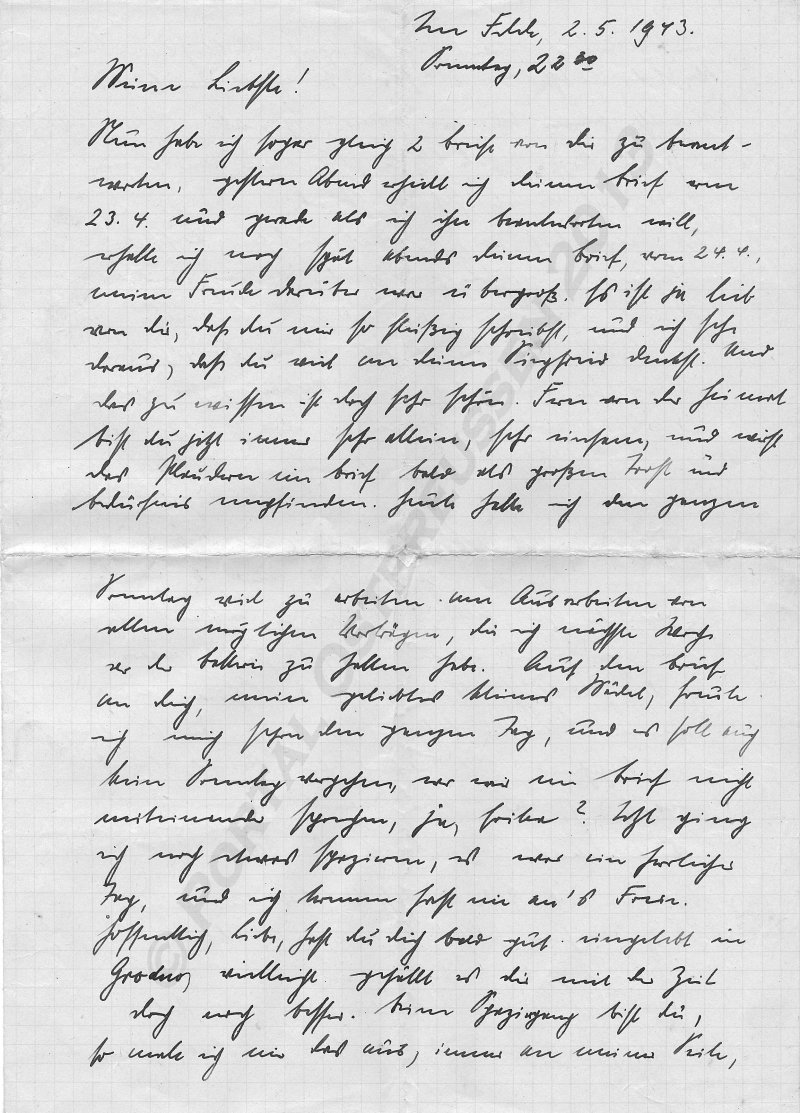 Im Felde, 2.5.1943.
Sonntag, 22³⁰
Meine Liebste!
Nun habe ich sogar gleich 2 Briefe von dir zu beant-
worten, gestern Abend erhielt ich deinen Brief vom
23.4. und gerade als ich ihn beantworten will,
erhalte ich noch spät abends deinen Brief, vom 24.4.,
meine Freude darüber war übergroß. Es ist ja lieb
von dir, daß du mir so fleißig schreibst, und ich sehe
daraus, daß du viel an deinen Siegfried denkst. Und
das zu wissen ist doch sehr schön. Fern von der Heimat
bist du jetzt immer sehr allein, sehr einsam, und wirst
das Plaudern im Brief bald als großen Trost und
Bedürfnis empfinden. Heute hatte ich den ganzen
Sonntag viel zu arbeiten am Ausarbeiten von
allen möglichen Vorträgen, die ich nächste Woche
vor der Batterie zu halten habe. Auf den Brief
an dich, mein geliebtes kleines Mädel, freute
ich mich schon den ganzen Tag, und es soll auch
kein Sonntag vergehen, wo wir im Brief nicht
miteinander sprechen, ja, ? Jetzt ging
ich noch etwas spazieren, es war ein herrlicher
Tag, und ich komme fast nie an's Freie.
Hoffentlich, Liebe, hast du dich bald gut eingelebt in
Grodno, vielleicht gefällt es dir mit der Zeit
doch noch besser. Beim Spaziergang bist du,
so male ich mir das aus, immer an meiner Seite,
© PORTAL OSTPREUSSEN